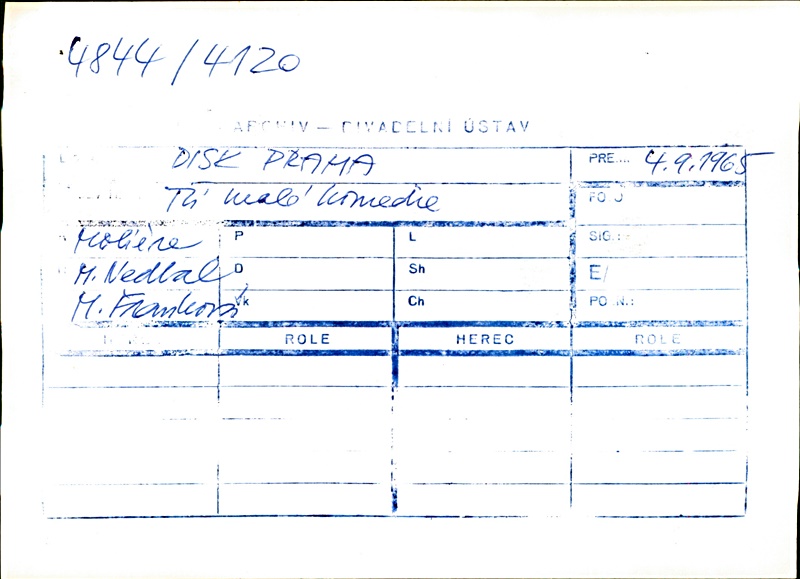 4844/4120
ARCHIV — DIVADELNÍ ÚSTAV
DISK PRAHA
PRE.... 4.9.1965
Tři malé komedie
FOTO
Moliére
P
L
SIG.:
M. Nedbal
D
Sh
E/
M. Franková
Vk
Ch
POZN.:
ROLE
HEREC
ROLE